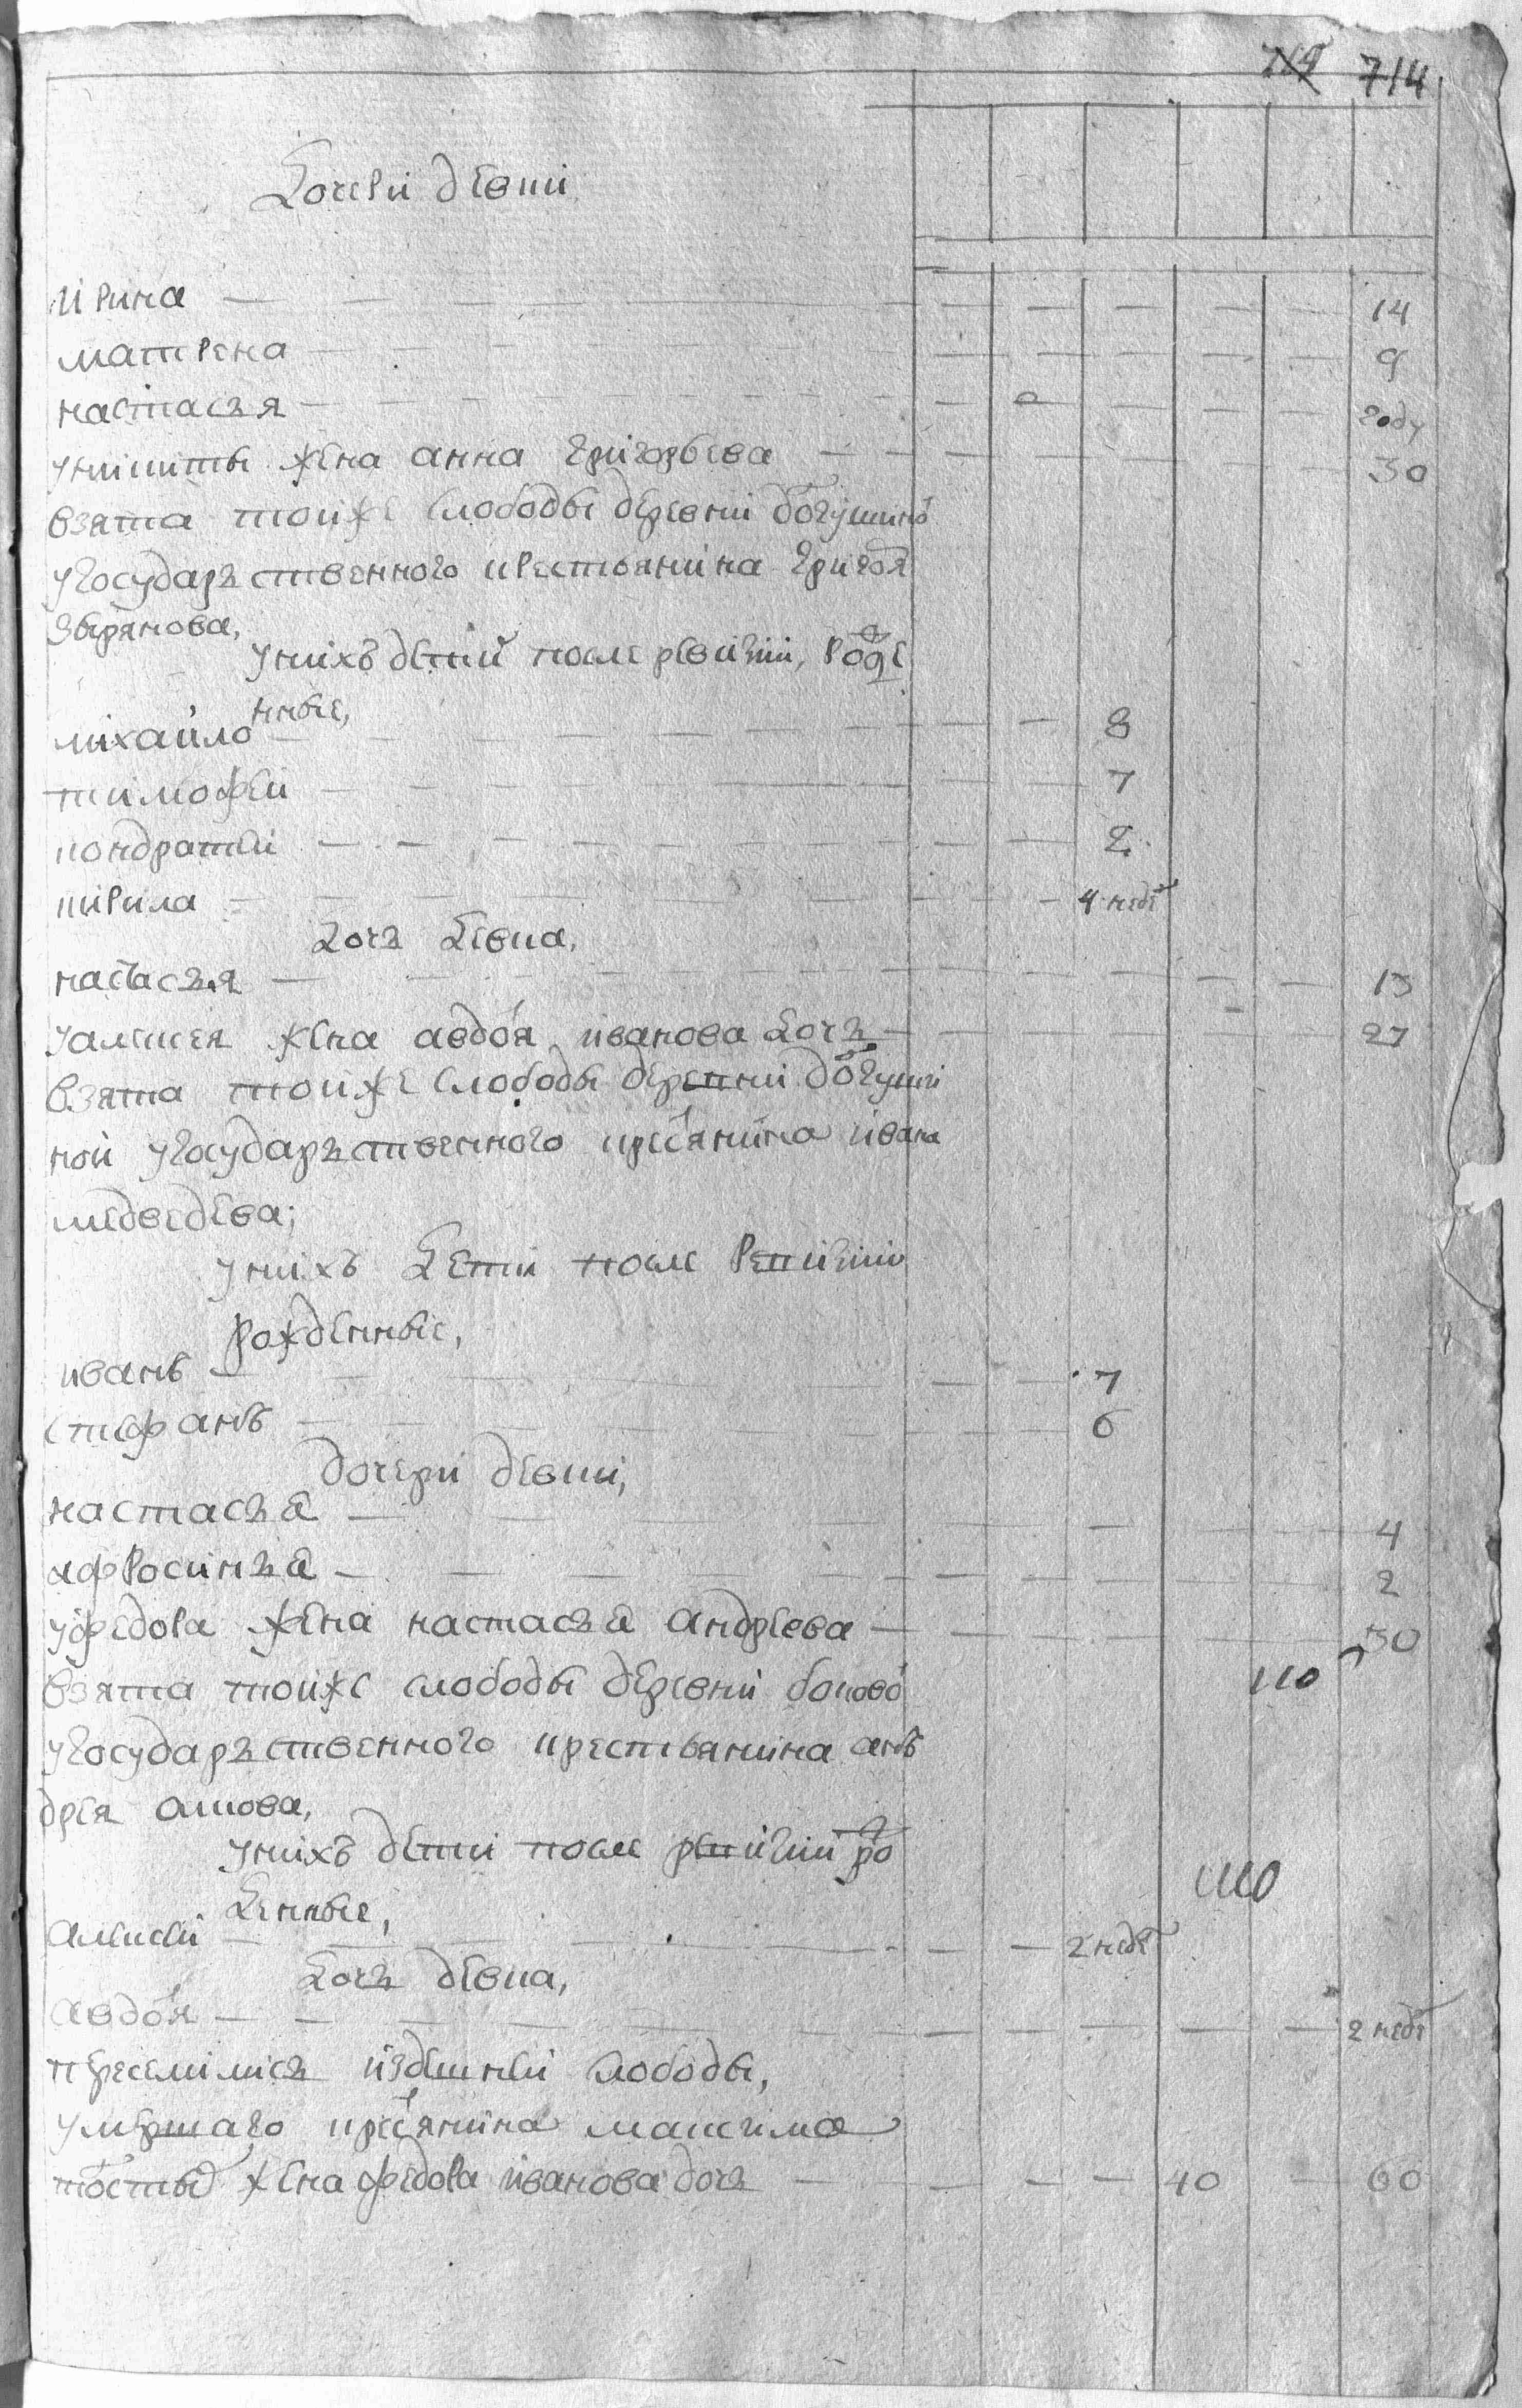 714
Дочери девки
ирина — 14
матрена — 9
настасья — году
у никиты жена анна григорьева — 30
взята тойже слободы деревни
у государственного крестьянина григоя
зырянова,
у нихъ детй после ревизии, роде
нные,
михаило — 8
тимофеи — 7
кондратеи — 2
кирила — 4 неде
дочь девка,
настасья — 13
у алексея жена авдоя иванова дочь — 27
взята тойже слободы деревни
ной у государственного кресянина ивана
медведева;
у нихъ дети после ревизии
рожденные,
иванъ — 7
стефанъ — 6
дочери девки,
настасья — 4
афросинья — 2
у федора жена настасья андреева — 30
взята тойже слободы деревни боково
у государственного крестьянина анъ
дрея
у нихъ дети после ревизии ро
денные,
алексеи — 2 неде
дочь девка,
авдоя — 2 неде
преселились издешней слободы,
умершаго кресянина максима
жена федора иванова дочь — 40 — 60